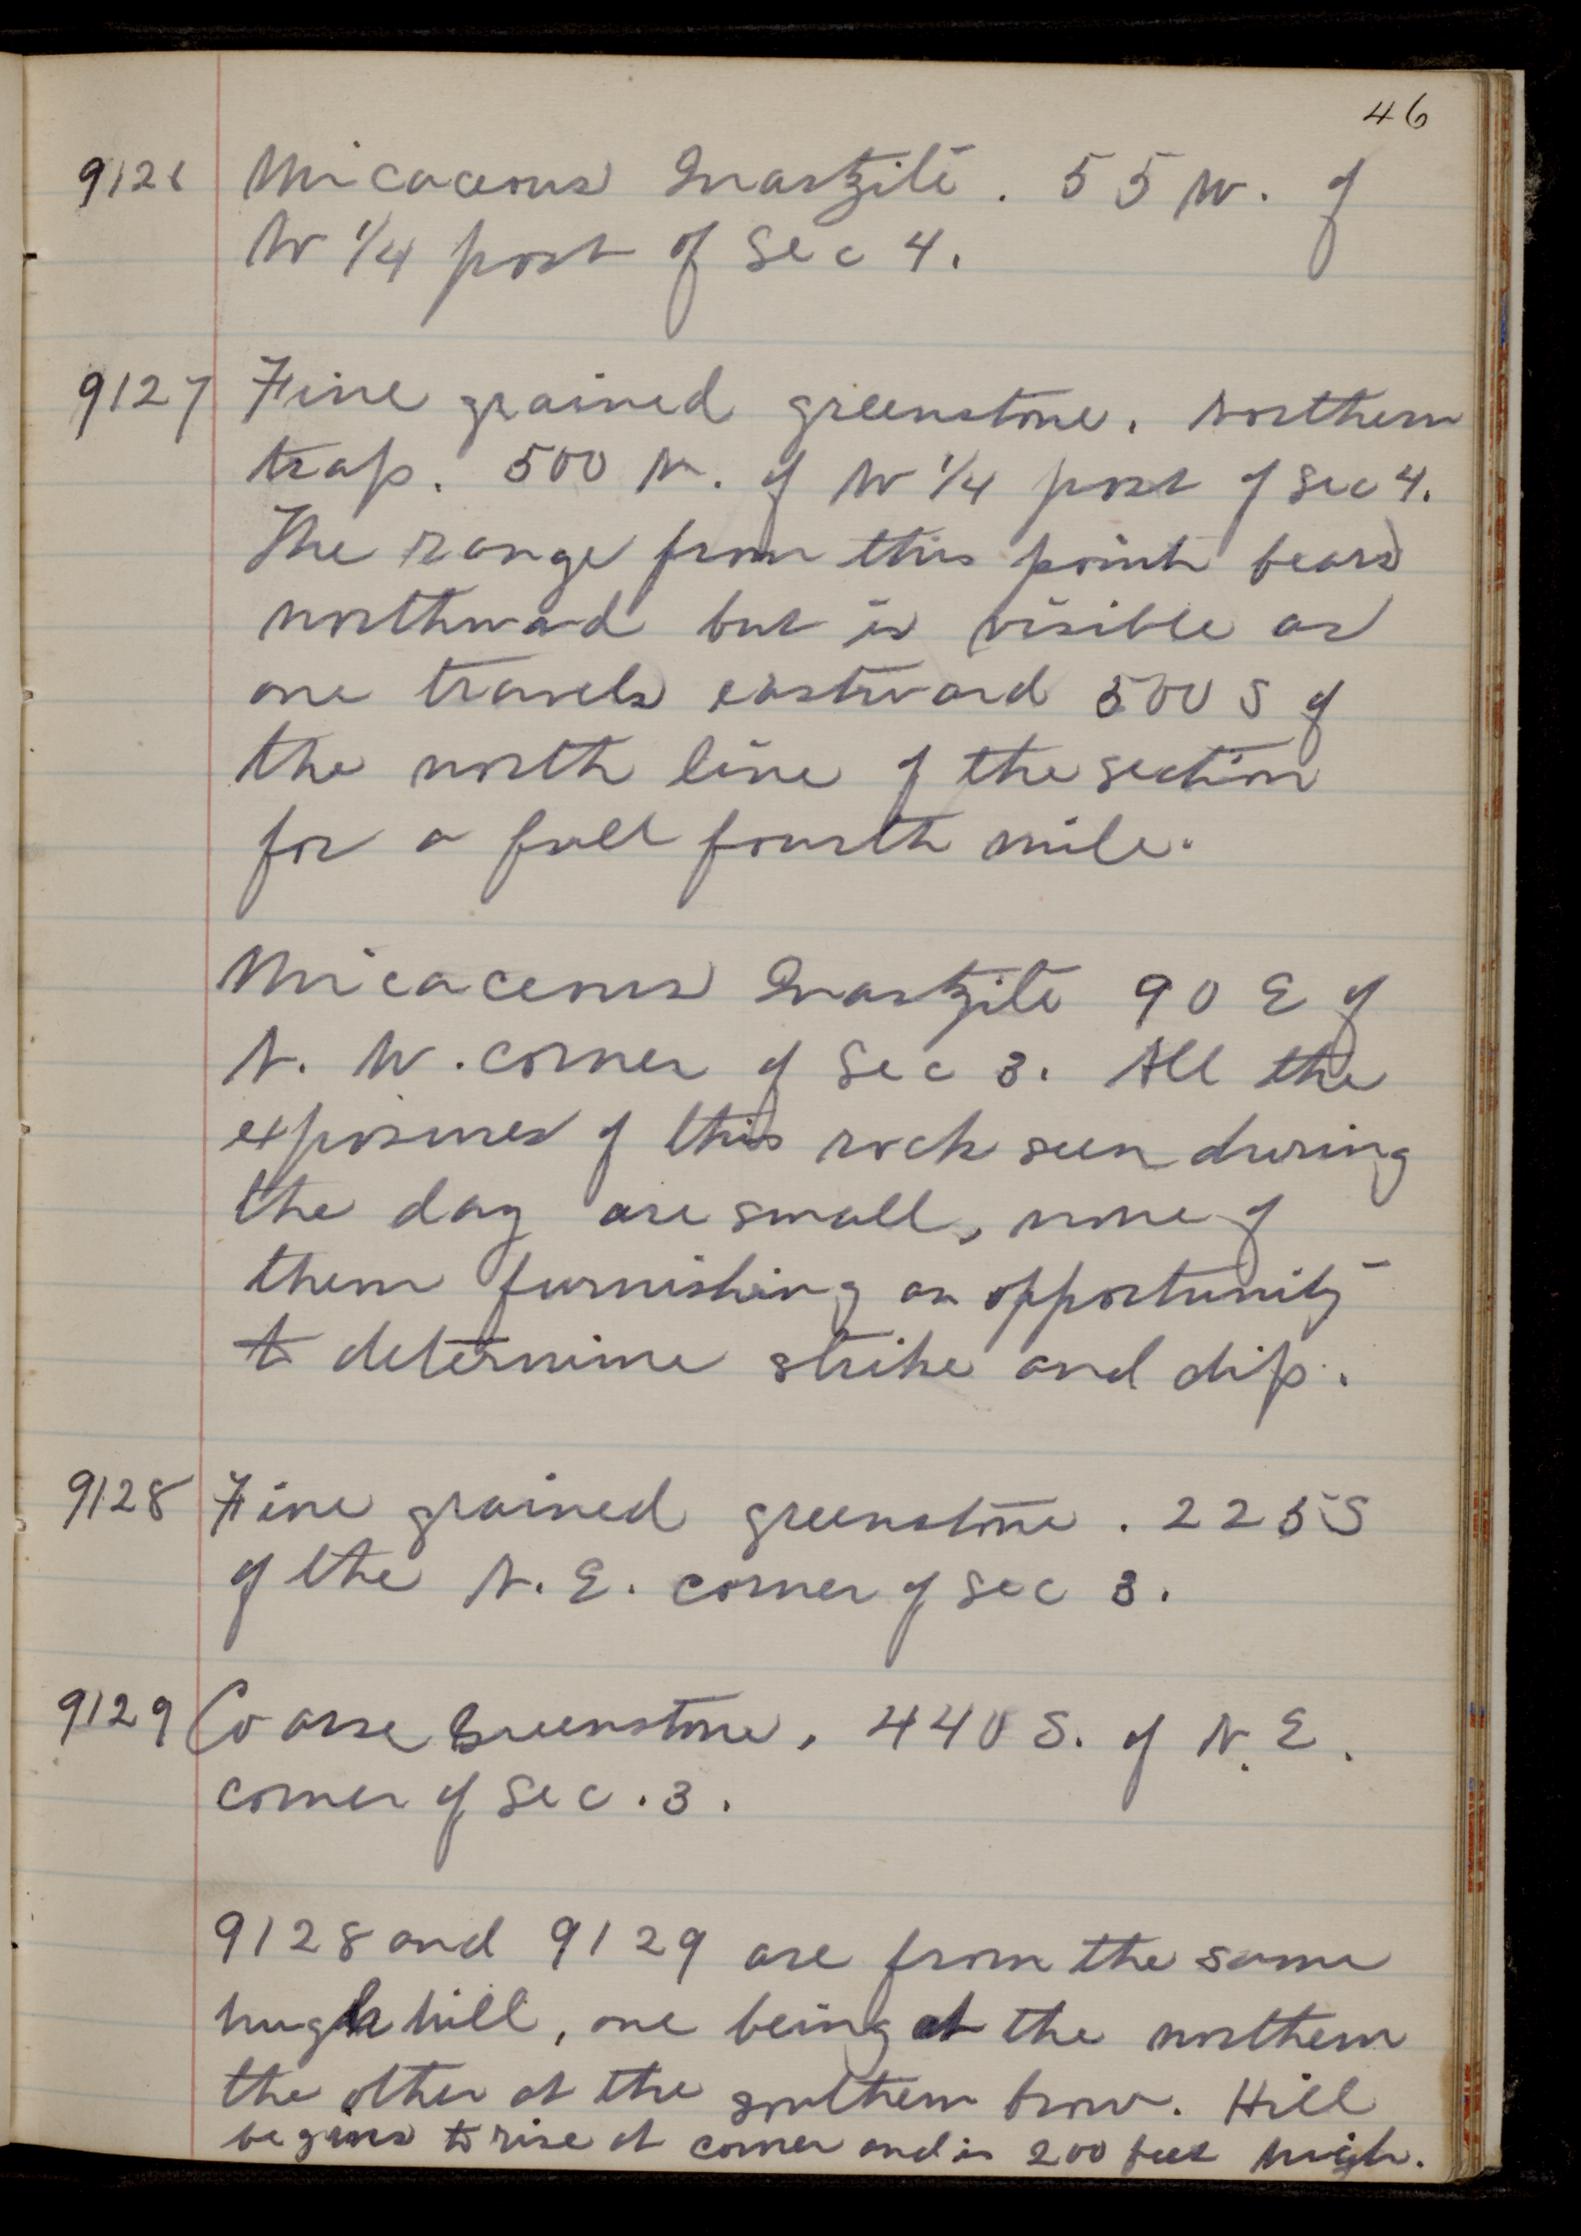 46
9126 Micaceous Quartzite. 55 W. of
W 1/4 post of Sec 4.
9127 Fine grained greenstone. Northern
trap. 500 N. of W 1/4 post of Sec 4.
The range from this point bears
northward but is visible as
one travels eastward 500 S of
the north line of the section
for a full fourth mile.
Micaceous Quartzite 90 E of
N. W. corner of Sec 3. All the
exposures of this rock seen during
the day are small, none of
them furnishing an opportunity
to determine strike and dip.
9128 Fine grained greenstone. 225 S
of the N. E. corner of Sec 3.
9129 Coarse Greenstone, 440 S. of N. E.
corner of Sec. 3.
9128 and 9129 are from the same
hugh hill, one being at the northern
the other at the southern brow. Hill
begins to rise at corner and is 200 feet high.